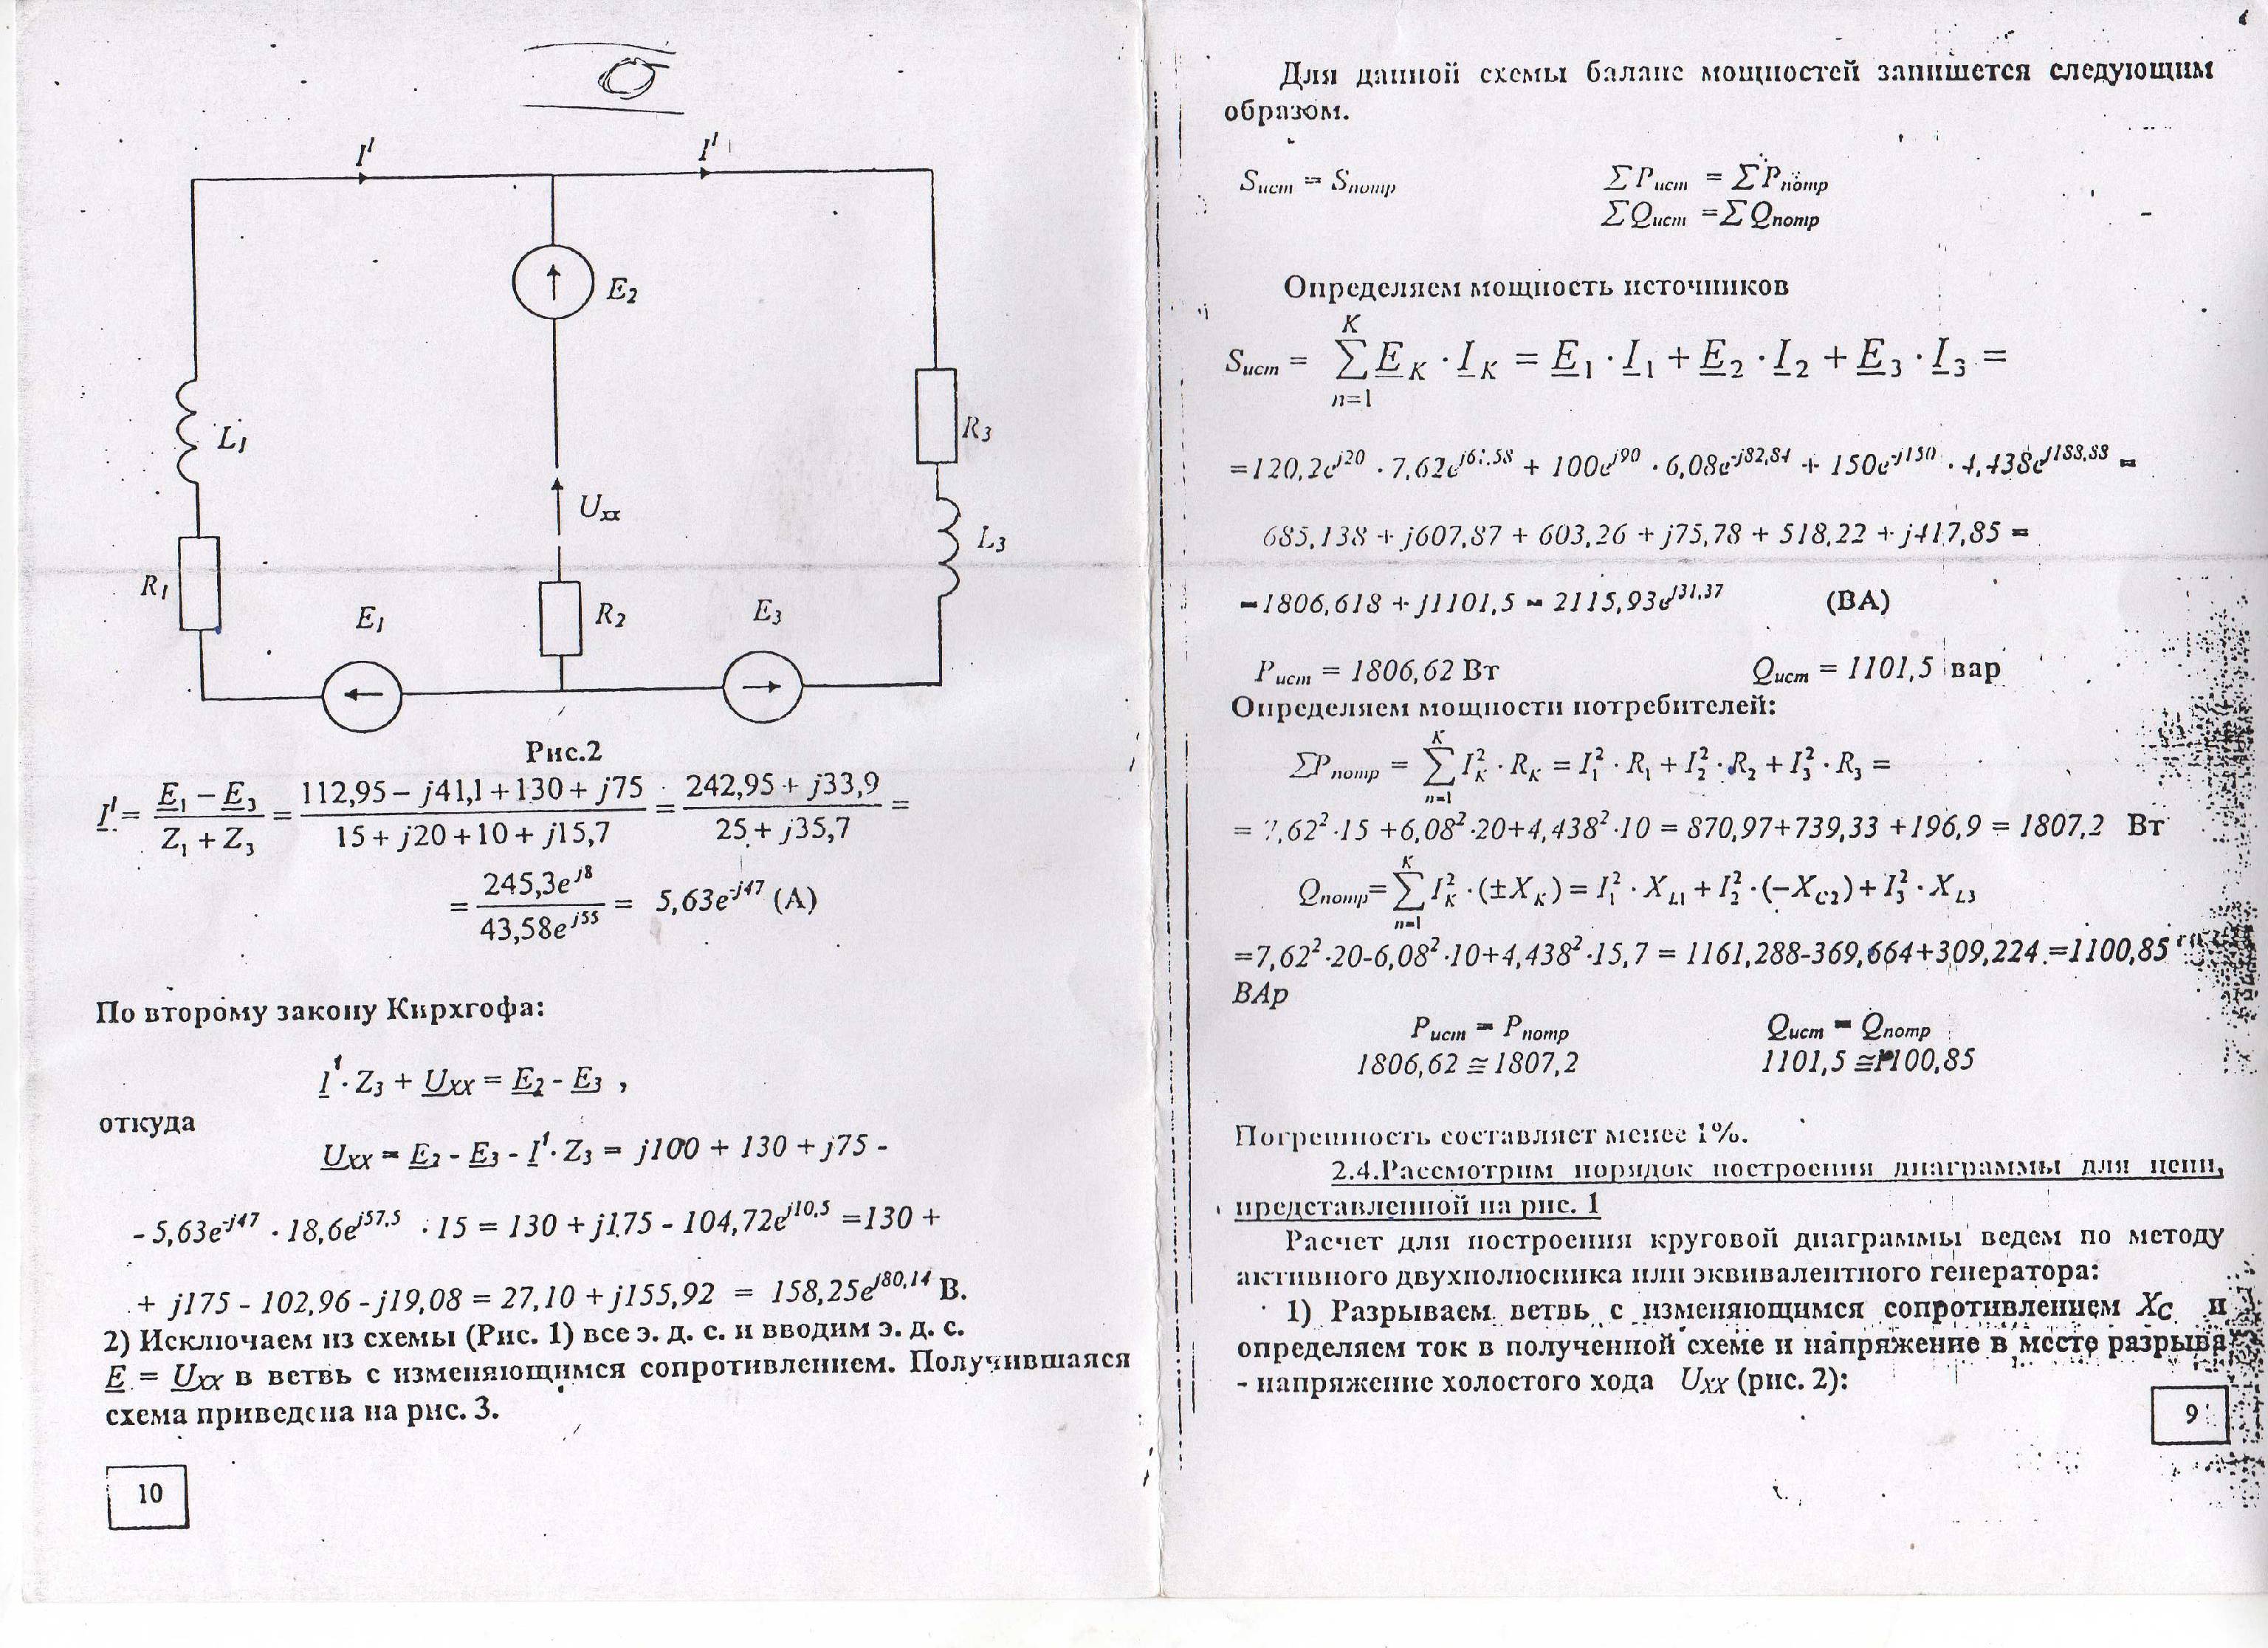 I'
I'
E2
L1
R3
Uxx
L3
R1
E1
R2
E3
Рис.2
I' = (E1 − E3)/(Z1 + Z3) = (112,95 − j41,1 + 130 + j75)/(15 + j20 + 10 + j15,7) = (242,95 + j33,9)/(25 + j35,7) =
= 245,3e^j8/43,58e^j55 = 5,63e^-j47 (А)
По второму закону Кирхгофа:
I' · Z3 + Uxx = E2 - E3 ,
откуда
Uxx = E2 - E3 - I' · Z3 = j100 + 130 + j75 -
- 5,63e^-j47 · 18,6e^j57,5 · 15 = 130 + j175 - 104,72e^j10,5 =130 +
+ j175 - 102,96 -j19,08 = 27,10 + j155,92 = 158,25e^j80,14 В.
2) Исключаем из схемы (Рис. 1) все э. д. с. и вводим э. д. с.
E = Uxx в ветвь с изменяющимся сопротивлением. Получившаяся
схема приведена на рис. 3.
10
Для данной схемы баланс мощностей запишется следующим
образом.
Sист = Sпотр ΣPист = ΣPпотр
ΣQист =ΣQпотр
Определяем мощность источников
Sист = Σ(n=1..K) EK · IK = E1 · I1 + E2 · I2 + E3 · I3 =
=120,2e^j20 · 7,62e^j61,58 + 100e^j90 · 6,08e^-j82,84 + 150e^-j150 · 4,438e^j188,88 =
685,138 + j607,87 + 603,26 + j75,78 + 518,22 + j417,85 =
=1806,618 + j1101,5 = 2115,93e^j31,37 (ВА)
Pист = 1806,62 Вт Qист = 1101,5 вар
Определяем мощности потребителей:
ΣPпотр = Σ(n=1..K) I²K · RK = I²1 · R1 + I²2 · R2 + I²3 · R3 =
= 7,62² ·15 +6,08² ·20+4,438² ·10 = 870,97+739,33 +196,9 = 1807,2 Вт
Qпотр= Σ(n=1..K) I²K · (±XK) = I²1 · XL1 + I²2 · (−XC2) + I²3 · XL3
=7,62² ·20-6,08² ·10+4,438² ·15,7 = 1161,288-369,664+309,224 =1100,85
ВАр
Pист = Pпотр Qист = Qпотр
1806,62 ≅ 1807,2 1101,5 ≅1100,85
Погрешность составляет менее 1%.
2.4.Рассмотрим порядок построения диаграммы для цепи,
представленной на рис. 1
Расчет для построения круговой диаграммы ведем по методу
активного двухполюсника или эквивалентного генератора:
1) Разрываем ветвь с изменяющимся сопротивлением XC и
определяем ток в полученной схеме и напряжение в месте разрыва
- напряжение холостого хода Uxx (рис. 2):
9